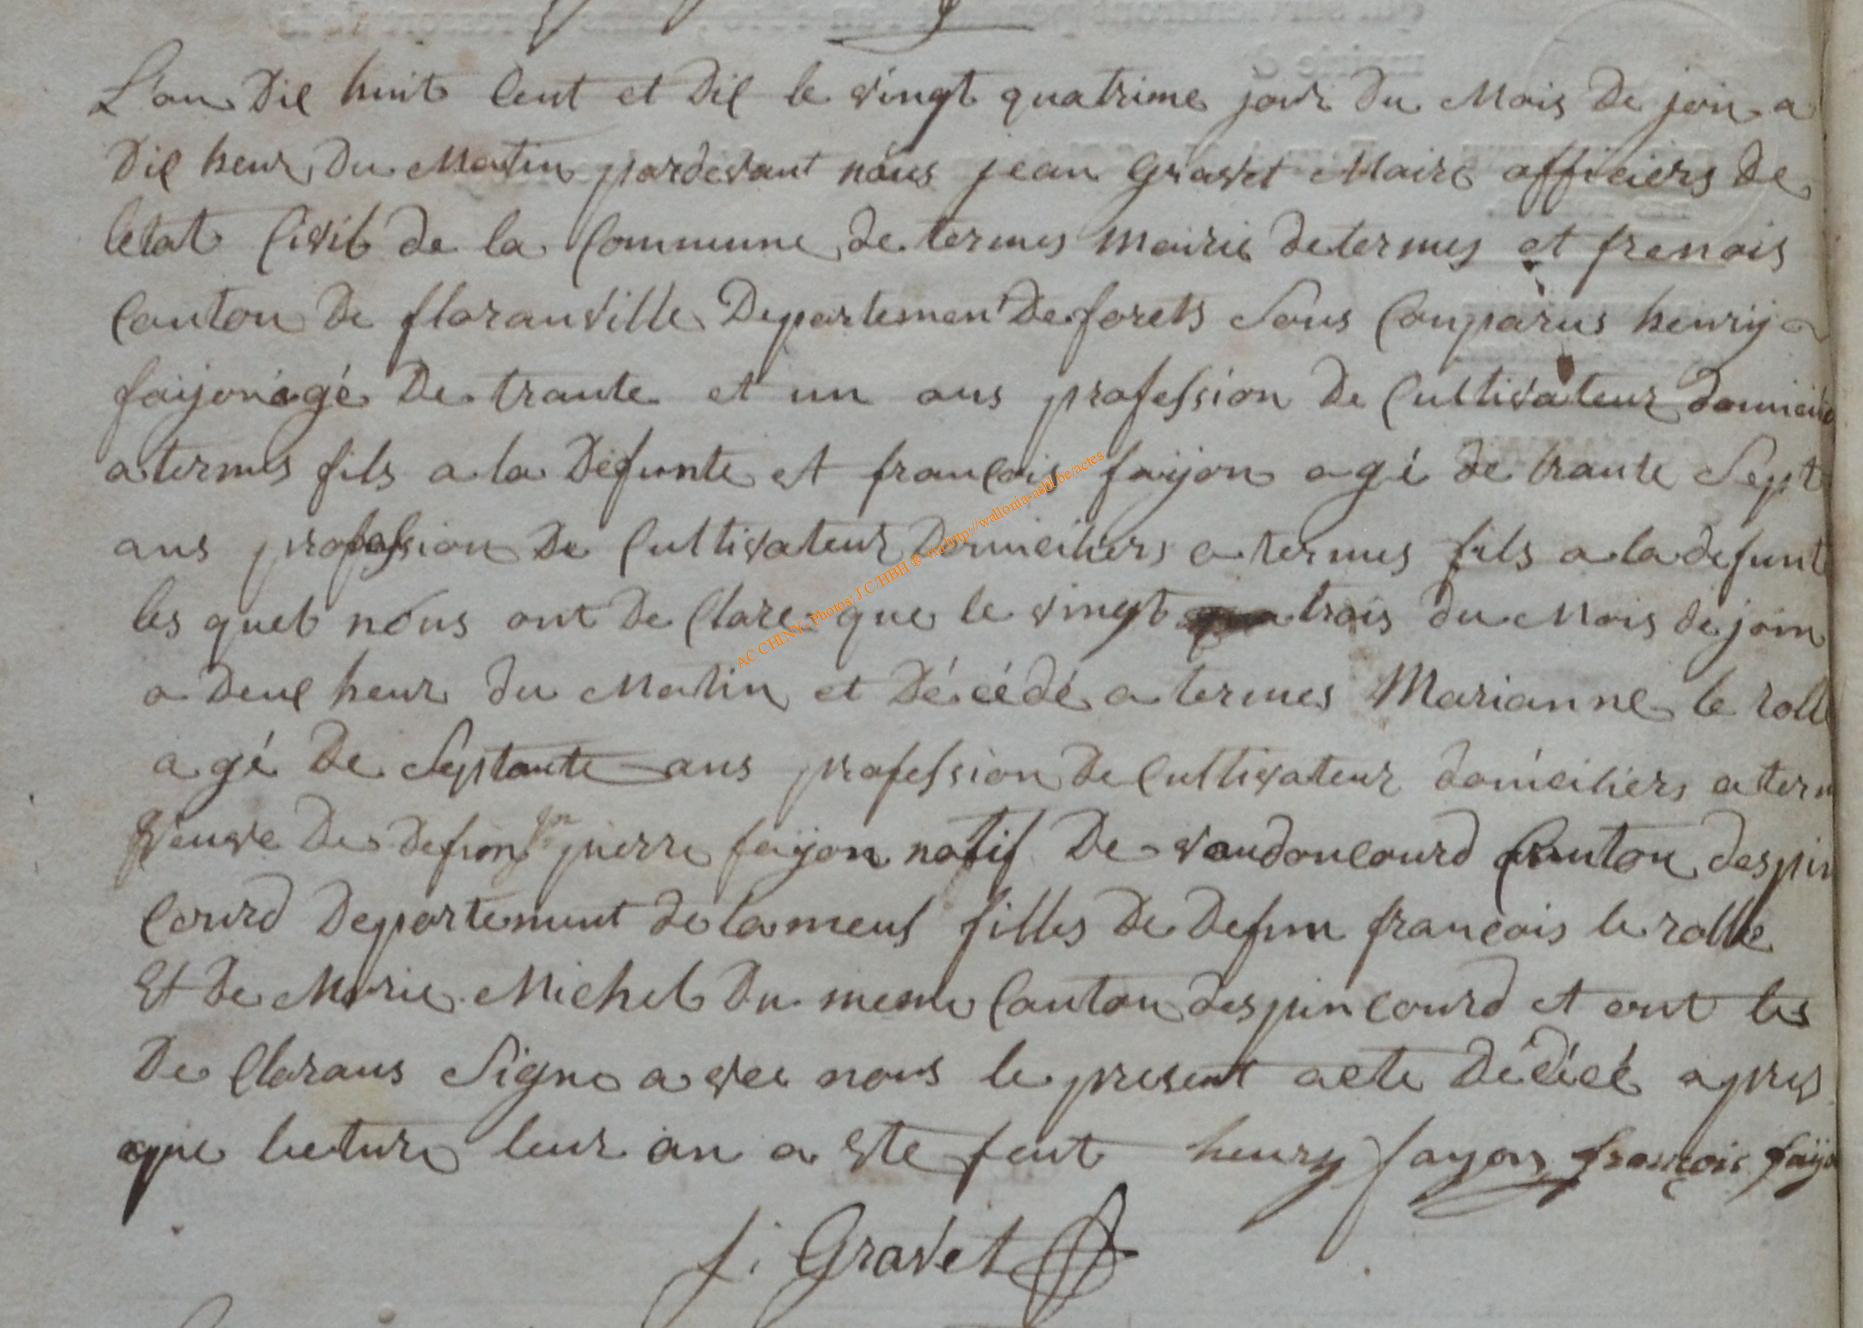 L'an Dix huit Cent et Dix le vingt quatrime jour Du Mois De join a
Dix heur Du Matin pardevant nous jean Gravet Maire officiers De
letat Civil de la Commune de termes mairie de termes et frenois
Canton De floranville Departemen De forets Sous Comparus henrij
faijon agé De trante et un ans profession De Cultivateur domicili
a termes fils a la Defunte et francois faijon agé de trante Sept
ans profession De Cultivateur Domiciliers a termes fils a la defunt
les quel nous ont De Clare que le vingt trois du Mois de join
a Deux heur du Matin et Décédé a termes Marianne le roll
agé De Septante ans profession De Cultivateur domiciliers a term
veuve De Defun pierre faijon natif De vaudoncourd Canton despin
Courd Departement de la meus filles De Defun francois le rolle
Et De Marie Michel Du meme Canton despincourd et ont les
De Clarans Signe avec nous le present acte Décécé apres
que lecture leur an a Ete fait henry fayon françois faijo
AC CHINY, Photos J C HBH ® via http://wallonia-asbl.be/actes
j. Gravet